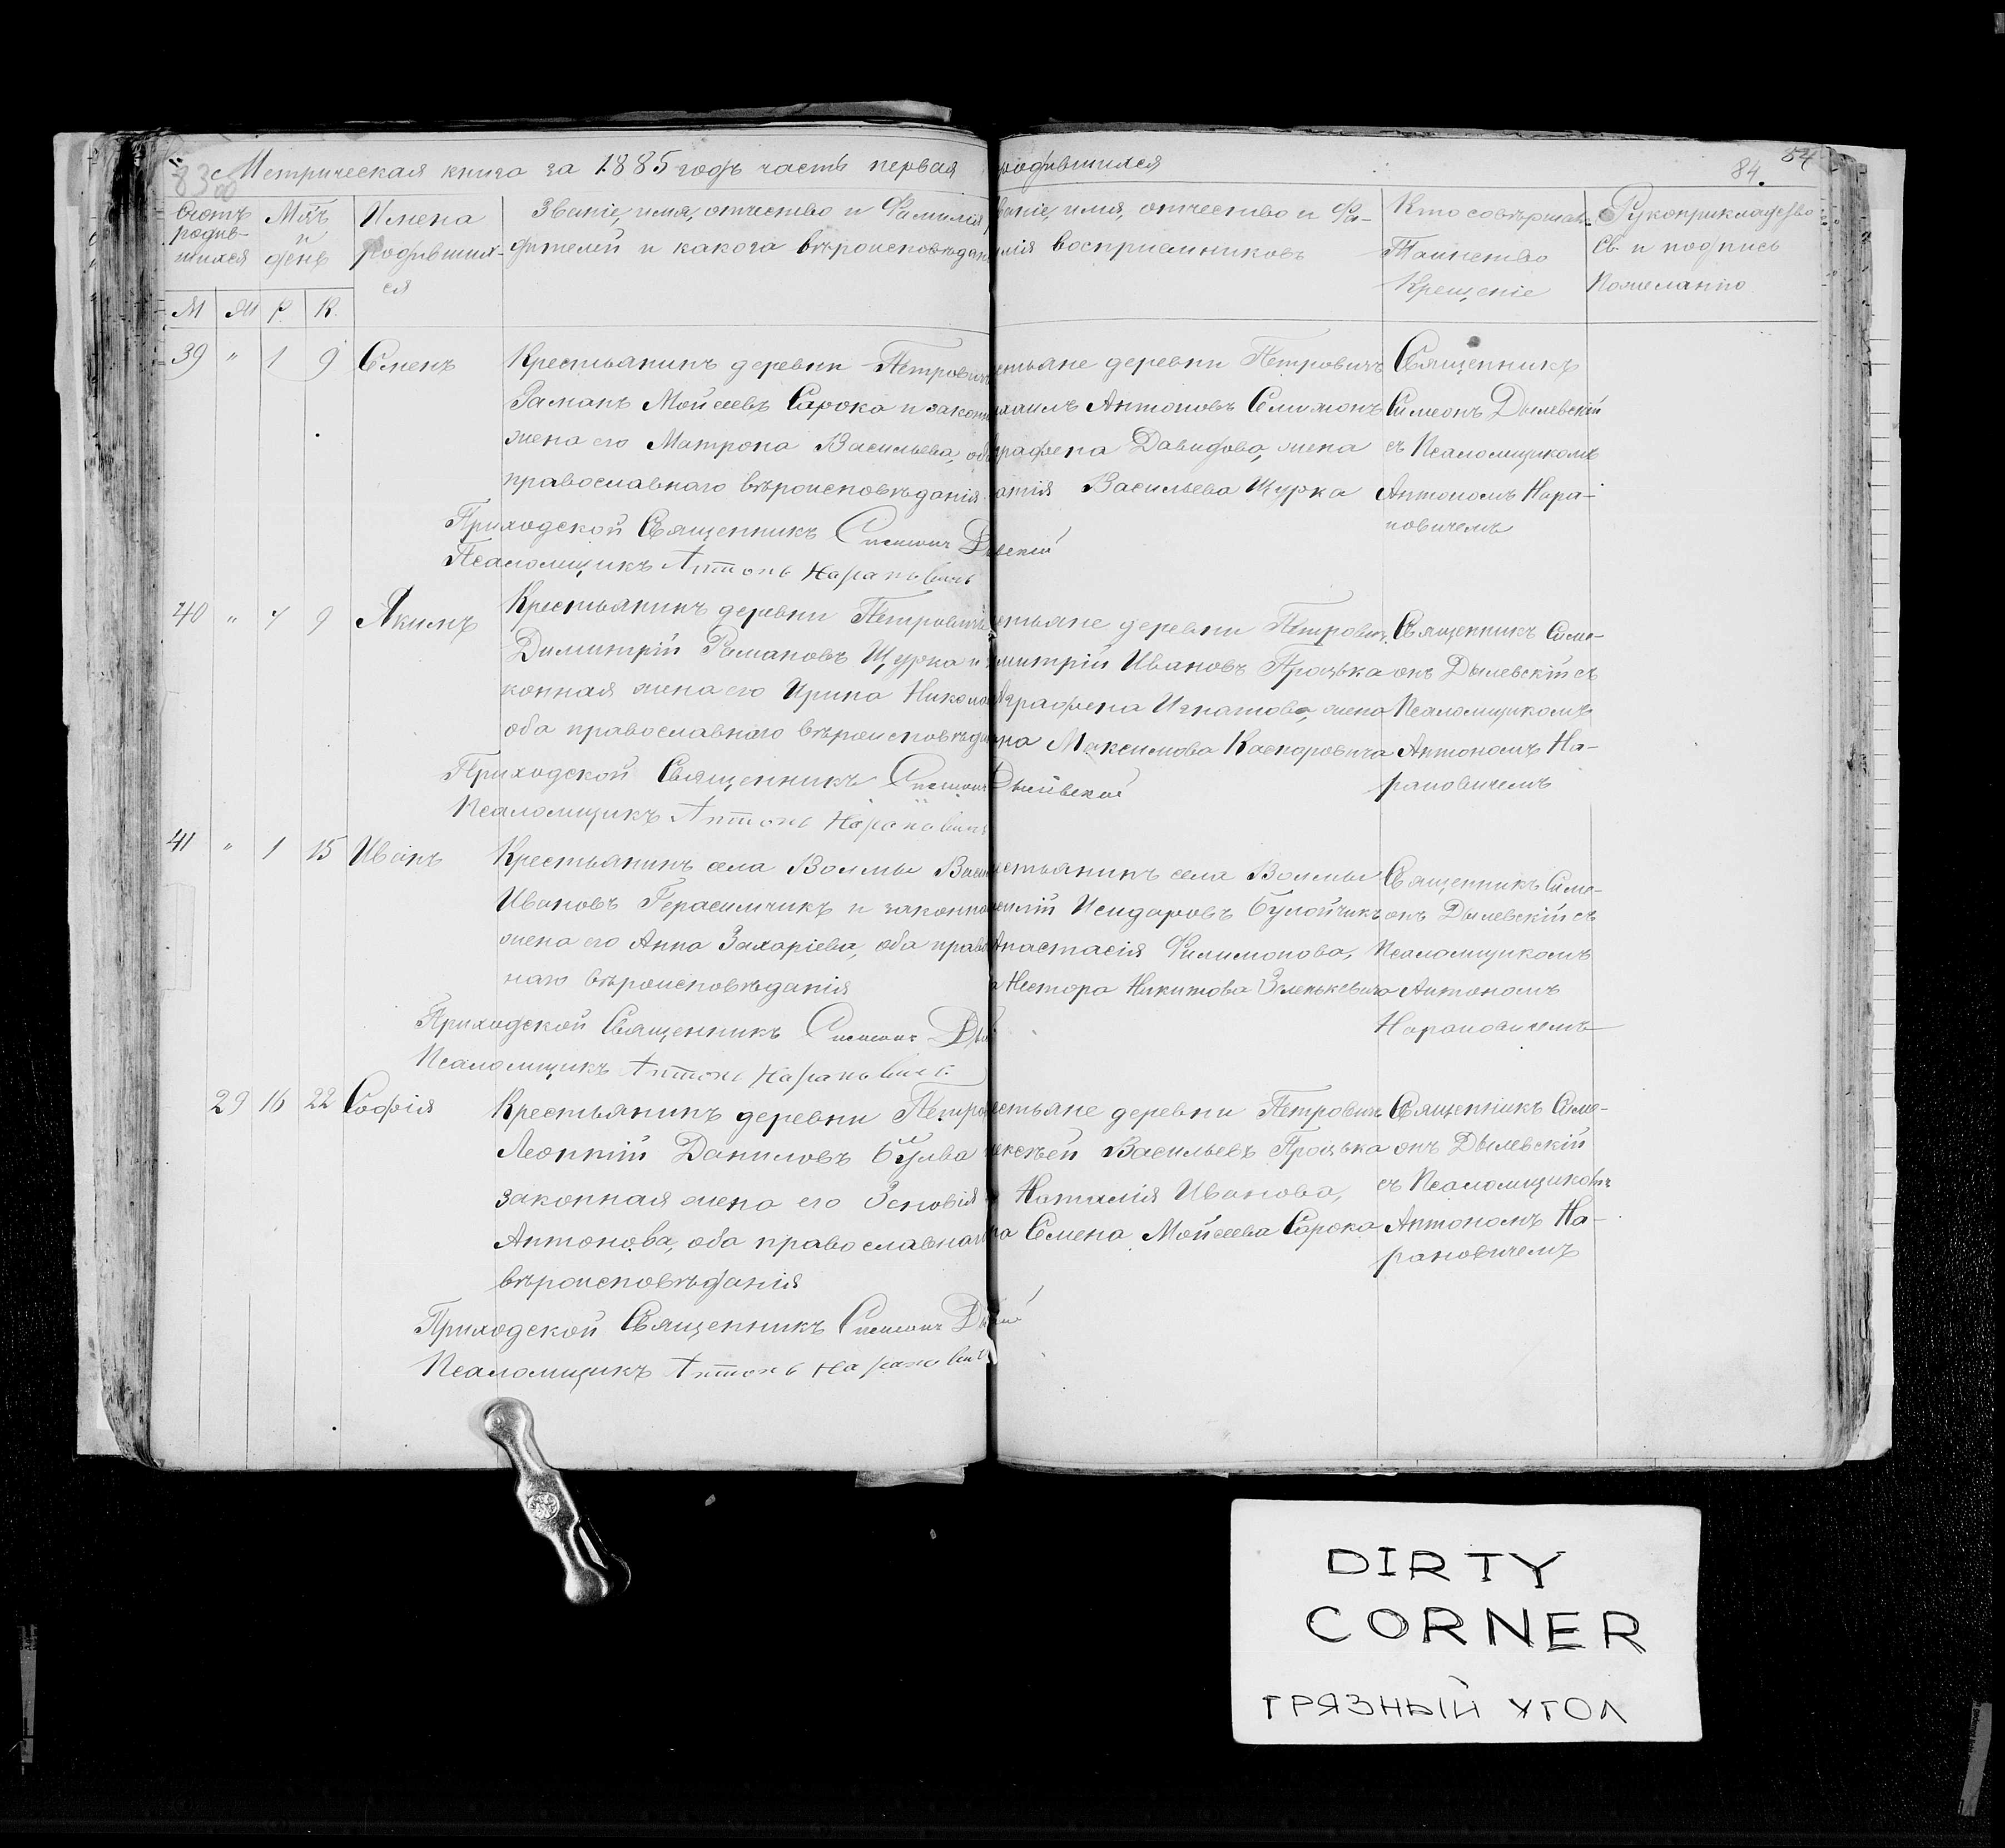 Метрическая книга за 1885 годъ часть первая родившихся
84.
54
Счотъ родив-шихся
Мцъ й день
Имена родивших-ся
Званіе, имя, отчество и Фамилія
дителей и какога вѣроисповѣдан
ваніе, имя, отчество и Фа-
милія восприемниковъ
Кто совѣршав.
Таинство
Крещеніе
Рукоприкладство
Св. и подпись
Пожеланію
М М Р. К.
39 " 1 9 Семенъ
Крестьянинъ деревни Петрович
Раманъ Мойсеевъ Сарока и законн
жена его Матрона Васильева, оба
православнаго вѣроисповѣданія
Приходской Священникъ Симеон Дылевскій
Псаломщикъ Антонъ Нарановичъ
естьяне деревни Петровичъ
хаилъ Антоновъ Селимонъ
графена Давидова, жена
атія Васильева Щурка
Священникъ
Симеонъ Дылевскій
съ Псаломщикомъ
Антономъ Нара-
новичемъ
40 " 7 9 Якимъ
Крестьянинъ деревни Петровичъ
Димитрій Рамановъ Щурка и
конная жена его Ирина Никола
оба православнаго вѣроисповѣда
Приходской Священникъ Симеон Дылевской
Псаломщикъ Антонъ Нарановичъ
естьяне деревни Петрович.
митрій Ивановъ Процька
Аграфена Игнатова, жена
на Максимова Каспоровича
Священникъ Симе-
онъ Дылевскій съ
Псаломщикомъ
Антономъ На-
рановичемъ
41 " 1 15 Иванъ
Крестьянинъ села Волмы Васи
Ивановъ Герасимчикъ и законна
жена его Анна Захаріева, оба право
наго вѣроисповѣданія
Приходской Священникъ Симеон Ды
Псаломщикъ Антонъ Нарановичъ
естьянинъ села Волмы
силій Исидаровъ Булойчикъ
Анастасія Филимонова,
а Нестора Никитова Зенькевича
Священникъ Симе-
онъ Дылевскій съ
Псаломщикомъ
Антономъ
Нарановичемъ
29 16 22 Софія
Крестьянинъ деревни Петро
Леонтій Даниловъ Булва
законная жена его Зеновія
Антонова, оба православнаго
вѣроисповѣданія
Приходской Священникъ Симеон Ды
Псаломщикъ Антонъ Нарановичъ
естьяне деревни Петровичъ
лексѣей Васильевъ Процька
Наталія Иванова,
на Семена Мойсеева Сарока
Священникъ Симе-
онъ Дылевскій
съ Псаломщиком
Антономъ На-
рановичемъ
DIRTY
CORNER
ГРЯЗНЫЙ УГОЛ